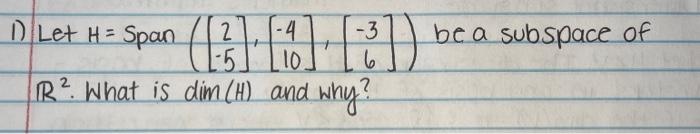 1) Let H = Span ([2 -5], [-4 10], [-3 6]) be a subspace of
ℝ². What is dim(H) and why?